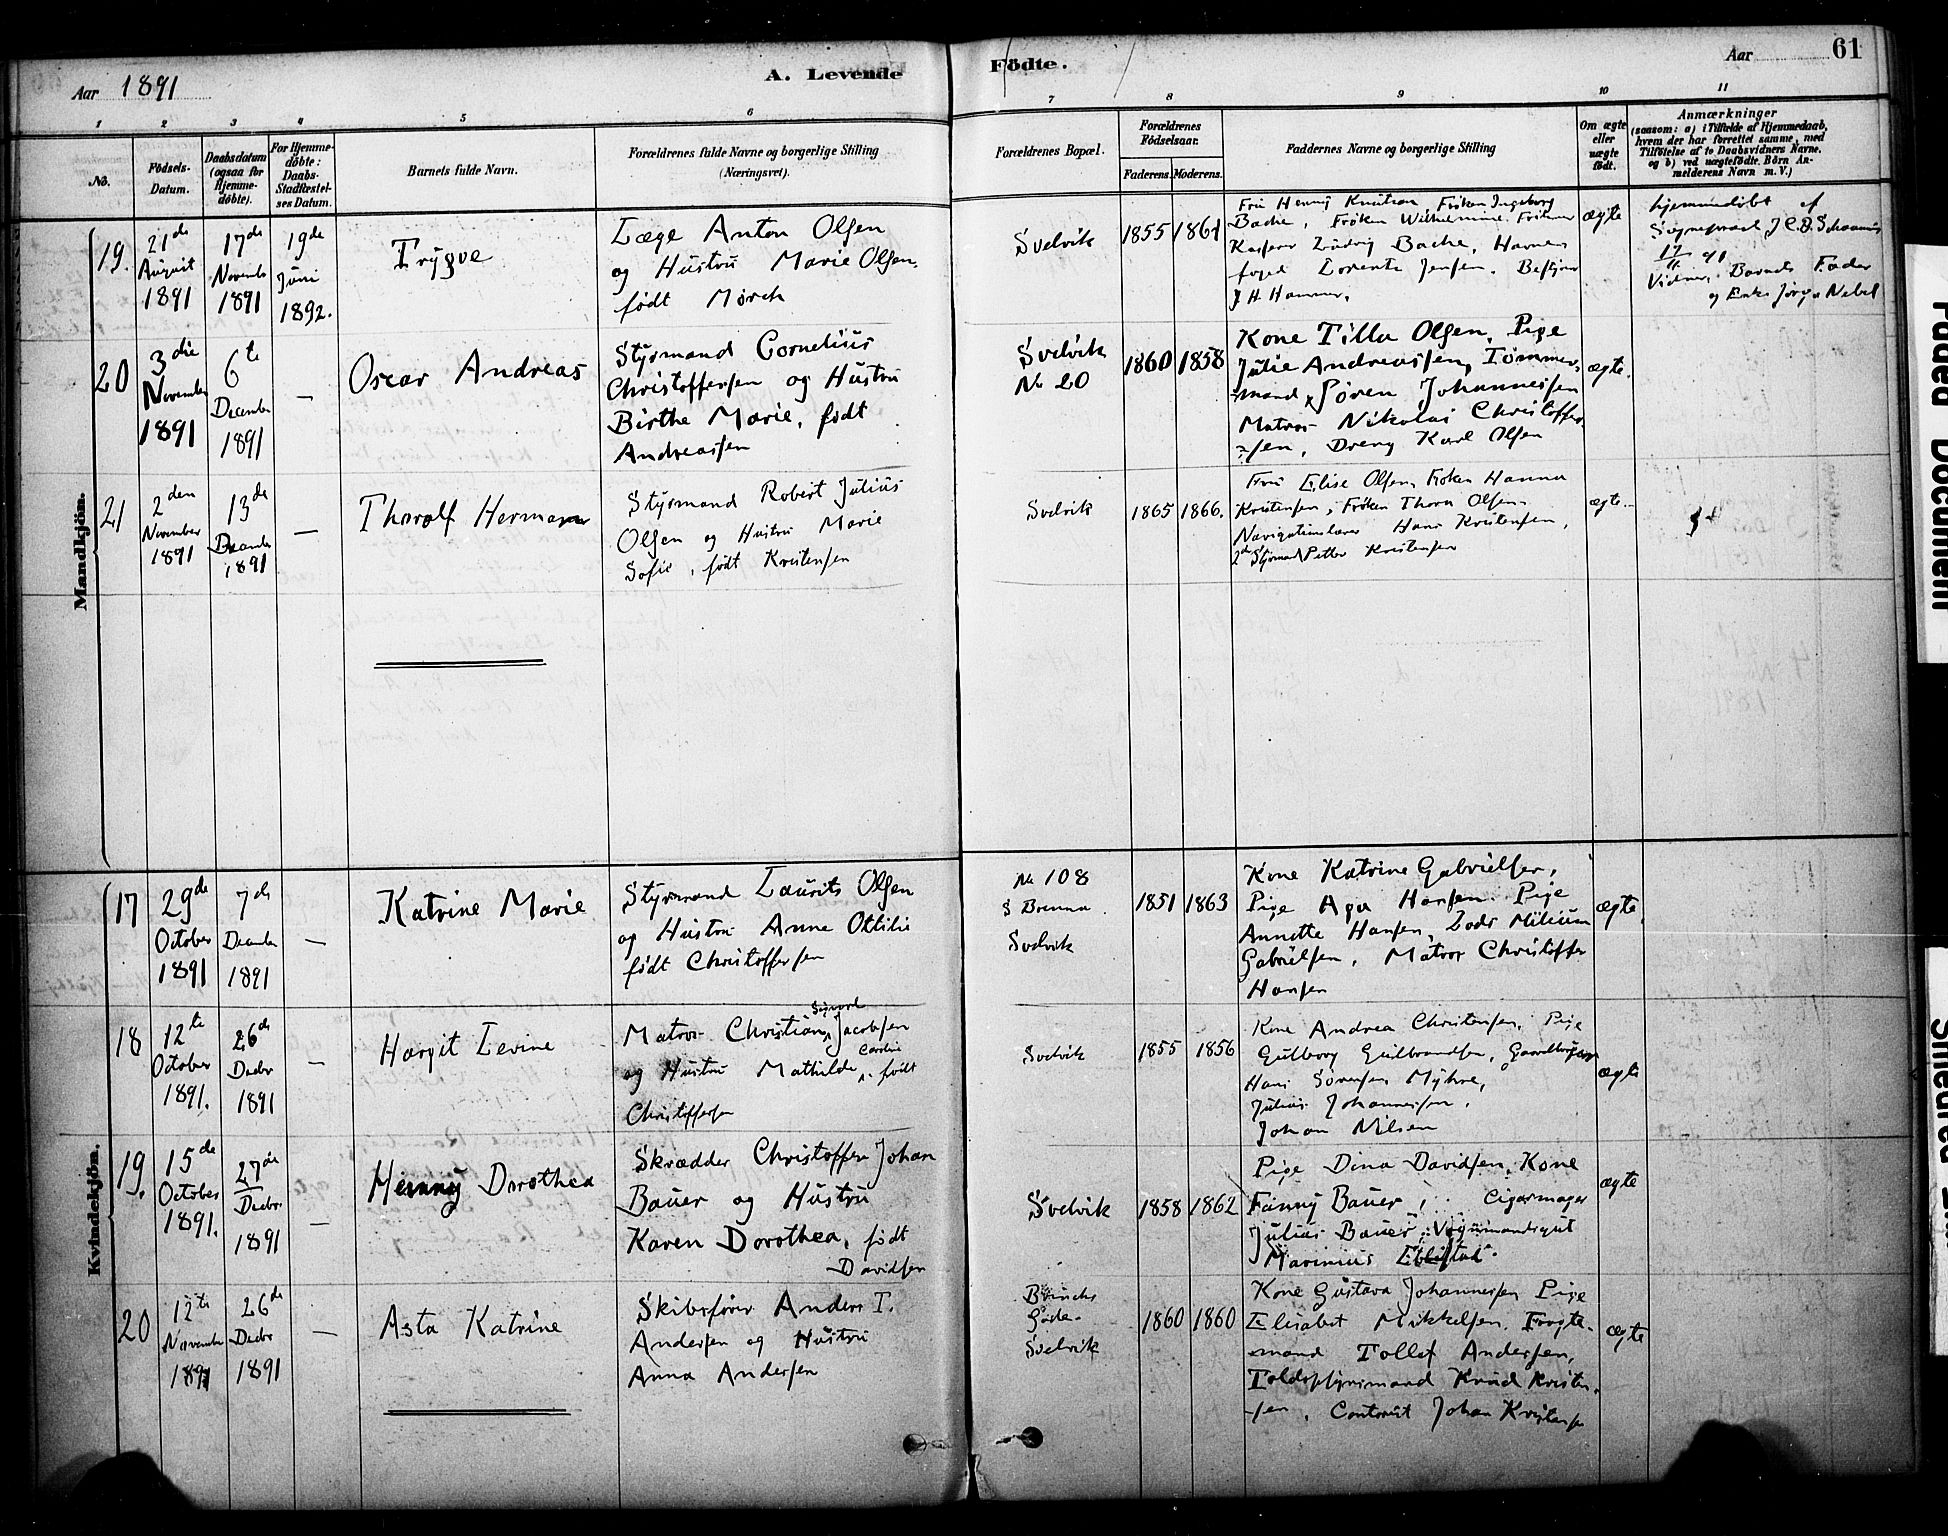 Aar 1891
A. Levende
Födte.
Aar
61
1
2
3
4
5
6
7
8
9
10
11
No.
Födsels-
Datum.
Daabsdatum
(ogsaa for
Hjemme-
döbte).
For Hjemme-
döbte:
Daabs-
Stadfæstel-
ses Datum.
Barnets fulde Navn.
Forældrenes fulde Navne og borgerlige Stilling
(Næringsvei).
Forældrenes Bopæl.
Forældrenes
Födselsaar.
Faderens.
Moderens.
Faddernes Navne og borgerlige Stilling
Om ægte
eller
uægte
födt.
Anmærkninger
(saasom: a) i Tilfælde af Hjemmedaab,
hvem der har forrettet samme, med
Tilföielse af to Daabsvidners Navne,
og b) ved uægtefödte Börn An-
melderens Navn m. V.)
Mandkjön.
19.
21de
August
1891
17de
Novembr
1891
19de
Juni
1892.
Trygve
Læge Anton Olsen
og Hustru Marie Olsen,
født Mørch
Svelvik
1855
1861
Fru Henny Knutson, Frøken Ingeborg
Bache, Frøken Wilhelmine
Kaspar Ludvig Bache, Havne-
foged Lorentz Jensen.
J H Hammer.
ægte
hjemmedøbt af
Sognepræst J C D
17/11 91
Vidner, Barnets Fader
og Enke Nebel
20
3die
November
1891
6te
December
1891
—
Oscar Andreas
Styrmand Cornelius
Christoffersen og Hustru
Birthe Marie, født
Andreassen
Svelvik
No 20
1860
1858
Kone Tilla Olsen, Pige
Julie Andreassen, Tømmer-
mand Søren Johannessen
Matros Nikolai Christoffer-
sen, Dreng Karl Olsen
ægte.
21
2den
November
1891
13de
December
1891
—
Thorolf Hermann
Styrmand Robert Julius
Olsen og Hustru Marie
Sofie, født Kristensen
Svelvik
1865
1866.
Fru Elise Olsen, Frøken Hanna
Kristensen, Frøken Thora Olsen
Navigationslærer Hans Kristensen,
2den Styrmand Petter Kristensen
ægte
Kvindekjön.
17
29de
October
1891
7de
December
1891
—
Katrine Marie
Styrmand Laurits Olsen
og Hustru Anne Ottilie
født Christoffersen
No 108
S Brenna
Svelvik
1851
1863
Kone Katrine Gabrielsen,
Pige Aga Hansen. Pige
Annette Hansen, Lods Milium
Gabrielsen, Matros Christoffer
Hansen
ægte
18
12te
October
1891.
26de
Decbr
1891
—
Hargit Levine
Matros Christian Sigvard Jacobsen
og Hustru Mathilde Caroline født
Christoffersen
Svelvik
1855
1856
Kone Andrea Christensen, Pige
Gulborg Gulbrandsen, Gaardbruger
Hans Sørensen Myhre,
Julius Johannessen,
Johan Nilsen
ægte
19.
15de
October
1891.
27de
Decbr.
1891
—
Henny Dorothea
Skrædder Christoffer Johan
Bauer og Hustru
Karen Dorothea, født
Davidsen
Svelvik
1858
1862
Pige Dina Davidsen, Kone
Fanny Bauer, Cigarmager
Julius Bauer, Vognmandsgut
Marinius
ægte
20
12te
November
1891
26de
Decbr
1891
—
Asta Katrine
Skibsfører Anders T.
Andersen og Hustru
Anna Andersen
Gade
Svelvik
1860
1860
Kone Gustava Johannessen Pige
Elisabet Mikkelsen. Fragte-
mand Tollef Andersen,
Toldopsynsmand Knud Kristen-
sen, Contorist Johan Kristensen
ægte